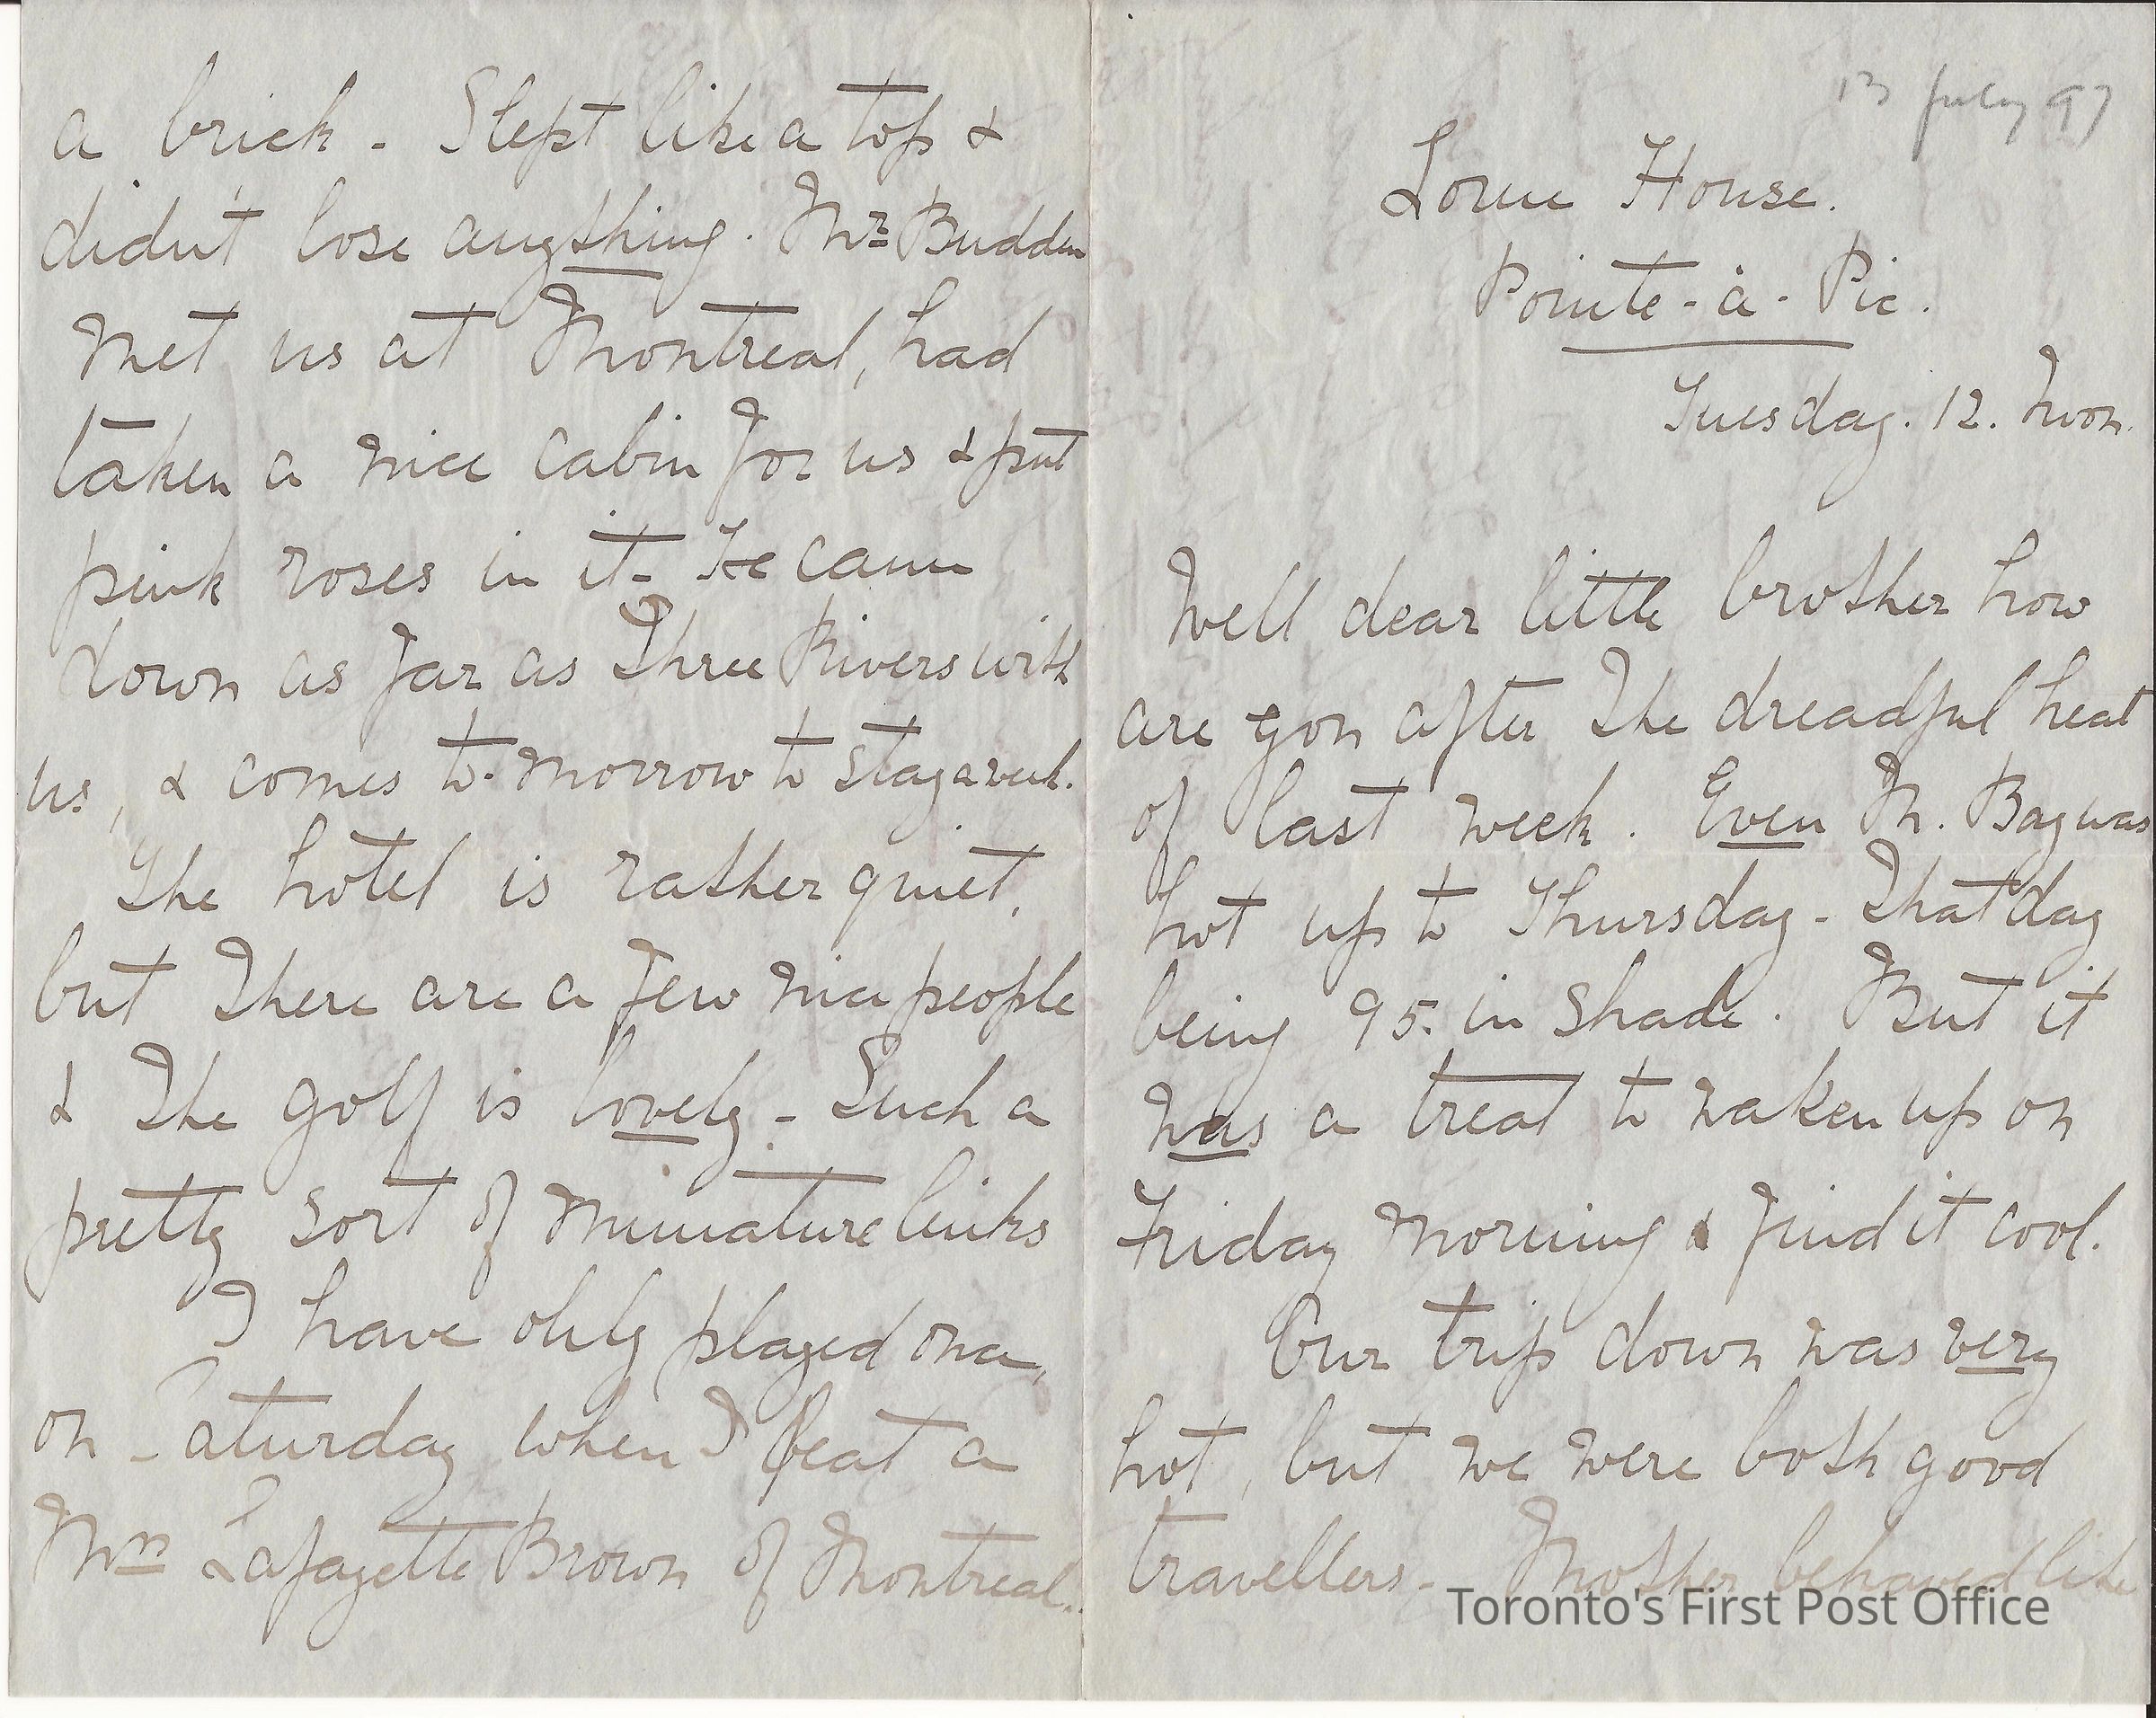 13 July 97
Lorne House.
Pointe-à-Pic.
Tuesday. 12. Noon.
Well dear little brother how
are you after the dreadful heat
of last week. Even M. Bay was
hot up to Thursday - That day
being 95. in shade. But it
was a treat to waken up on
Friday morning & find it cool.
Our trip down was very
hot, but we were both good
travellers - Mother behaved like
a brick - Slept like a top &
didn't lose anything. Mr Budden
met us at Montreal, had
taken a nice cabin for us & put
pink roses in it - He came
down as far as Three Rivers with
us, & comes to-morrow to stay a week.
The hotel is rather quiet,
but there are a few nice people
& the golf is lovely - Such a
pretty sort of miniature links
I have only played once,
on Saturday when I beat a
Mrs Lafayette Brown of Montreal.
Toronto's First Post Office